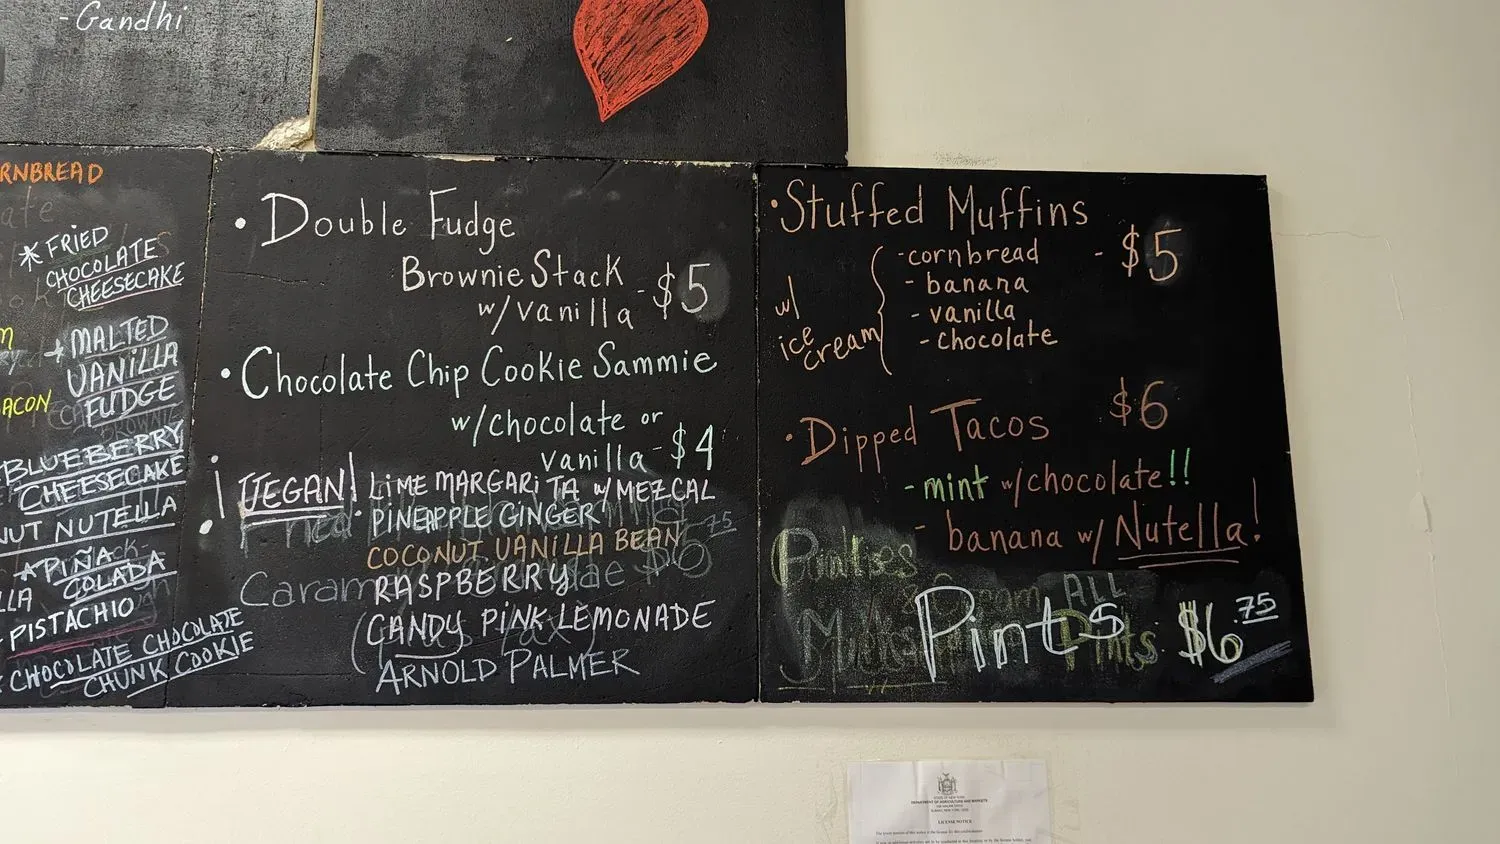 -Gandhi
RNBREAD
* FRIED
CHOCOLATE
CHEESECAKE
MALTED
VANILLA
FUDGE
ACON
BLUEBERRY
CHEESECAKE
NUT NUTELLA
PIÑA
COLADA
LLA
PISTACHIO
CHOCOLATE CHOCOLATE
CHUNK COOKIE
• Double Fudge
Brownie Stack
w/vanilla - $5
• Chocolate Chip Cookie Sammie
w/chocolate or
vanilla - $4
¡VEGAN! LIME MARGARITA w/MEZCAL
PINEAPPLE GINGER
COCONUT VANILLA BEAN
RASPBERRY
CANDY PINK LEMONADE
ARNOLD PALMER
• Stuffed Muffins
w/ ice cream
- cornbread - $5
- banana
- vanilla
- chocolate
• Dipped Tacos $6
- mint w/chocolate!!
- banana w/ Nutella!
ALL
Pints $6.75
STATE OF NEW YORK
DEPARTMENT OF AGRICULTURE AND MARKETS
LICENSE NOTICE